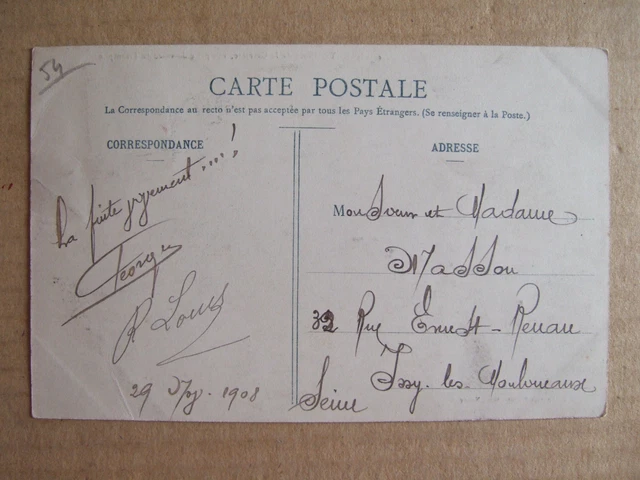 54
CARTE POSTALE
La Correspondance au recto n'est pas acceptée par tous les Pays Étrangers. (Se renseigner à la Poste.)
CORRESPONDANCE
La suite ....!
Georges
R Louis
29 1908
ADRESSE
Monsieur et Madame
Masson
32 Rue Ernest-Renan
Issy-les-Moulineaux
Seine